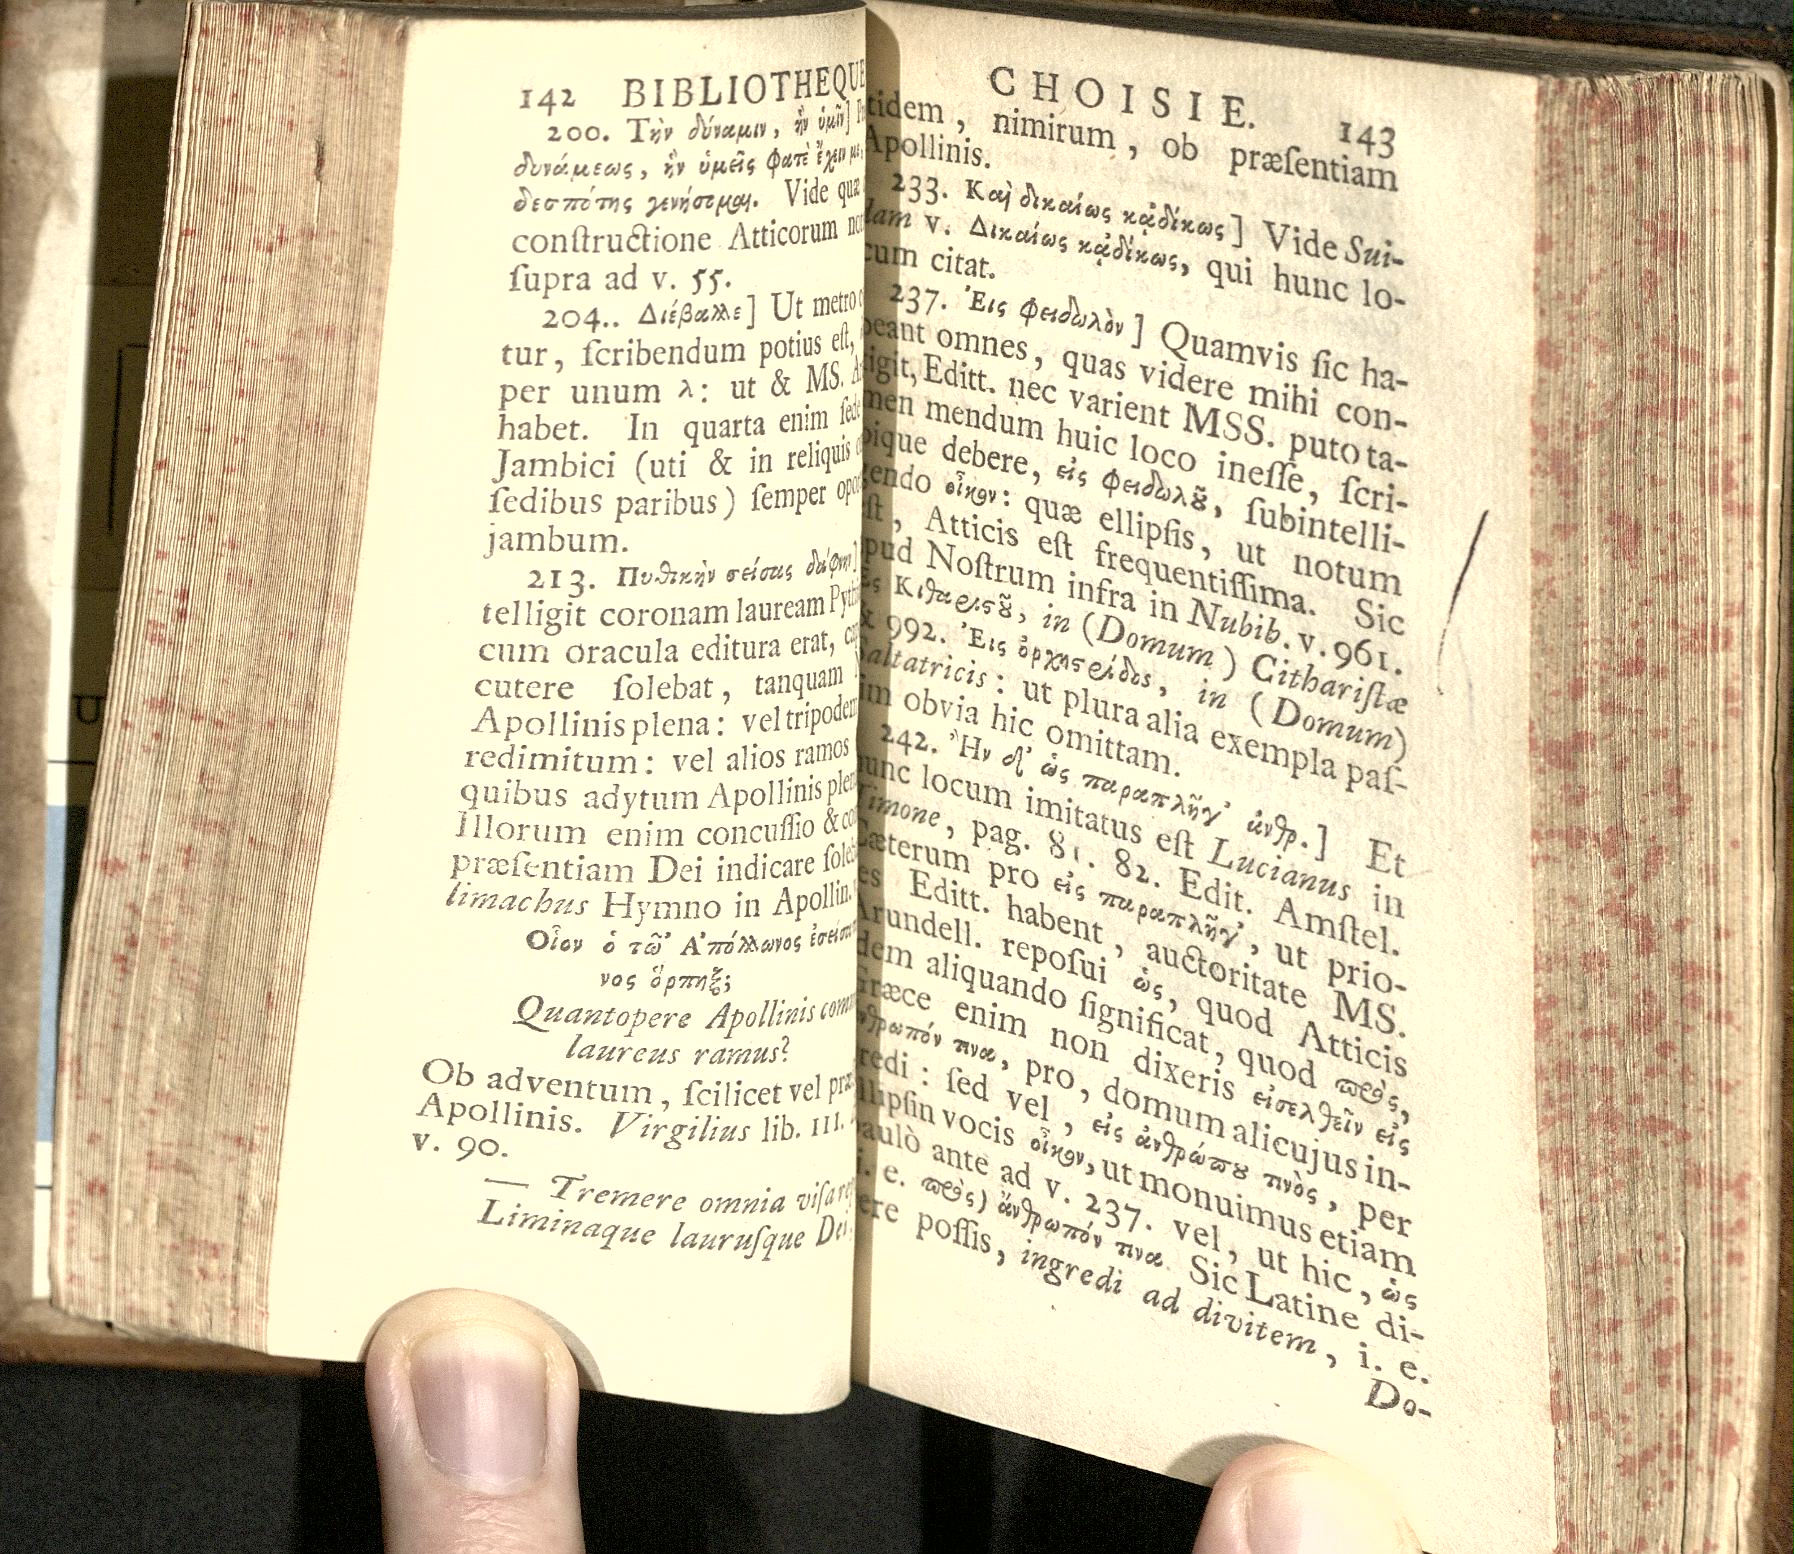 142 BIBLIOTHEQUE
200. Τὴν δύναμιν, ἣν ὑμεῖς]
δυνάμεως, ἣν ὑμεῖς φατὲ ἔχειν με,
δεσπότης γενήσομαι. Vide quæ
constructione Atticorum
ſupra ad v. 55.
204.. Διέβαλλε] Ut metro
tur, ſcribendum potius eſt,
per unum λ: ut & MS.
habet. In quarta enim ſede
Jambici (uti & in reliquis
ſedibus paribus) ſemper
jambum.
213. Πυθικὴν σείσας δάφνην]
telligit coronam lauream
cum oracula editura erat,
cutere ſolebat, tanquam
Apollinis plena: vel tripodem
redimitum: vel alios ramos
quibus adytum Apollinis
Illorum enim concuſſio &
præſentiam Dei indicare
limachus Hymno in Apollin.
Οἷον ὁ τὦ' Α'πόλλωνος ἐσείσατο
νος ὅρπηξ;
Quantopere Apollinis
laureus ramus?
Ob adventum, ſcilicet vel
Apollinis. Virgilius lib. III.
v. 90.
— Tremere omnia viſa
Liminaque lauruſque Dei,
CHOISIE. 143
tidem, nimirum, ob præſentiam
Apollinis.
233. Καὶ δικαίως κᾀδίκως] Vide Sui-
dam v. Δικαίως κᾀδίκως, qui hunc lo-
cum citat.
237. Ἐις φειδωλὸν] Quamvis ſic ha-
beant omnes, quas videre mihi con-
tigit, Editt. nec varient MSS. puto ta-
men mendum huic loco ineſſe, ſcri-
bique debere, εἰς φειδωλȣ͂, ſubintelli-
gendo οἶκον: quæ ellipſis, ut notum
eſt, Atticis eſt frequentiſſima. Sic
apud Noſtrum infra in Nubib. v. 961.
Ἐς Κιθαριςȣ͂, in (Domum) Cithariſtæ
& 992. Ἐις ὀρχηςρίδος, in (Domum)
Saltatricis: ut plura alia exempla paſ-
ſim obvia hic omittam.
242. Ἢν δ' ὡς παραπλῆγ' ἄνθρ.] Et
hunc locum imitatus eſt Lucianus in
Timone, pag. 81. 82. Edit. Amſtel.
Cæterum pro εἰς παραπλῆγ', ut prio-
res Editt. habent, auctoritate MS.
Arundell. repoſui ὡς, quod Atticis
idem aliquando ſignificat, quod πρὸς,
Græce enim non dixeris εἰσελθεῖν εἰς
ἄνθρωπόν τινα, pro, domum alicujus in-
gredi: ſed vel, εἰς ἀνθρώπȣ τινὸς, per
ellipſin vocis οἶκον, ut monuimus etiam
paulò ante ad v. 237. vel, ut hic, ὡς
(i. e. πρὸς) ἄνθρωπόν τινα. Sic Latine di-
cere poſſis, ingredi ad divitem, i. e.
Do-